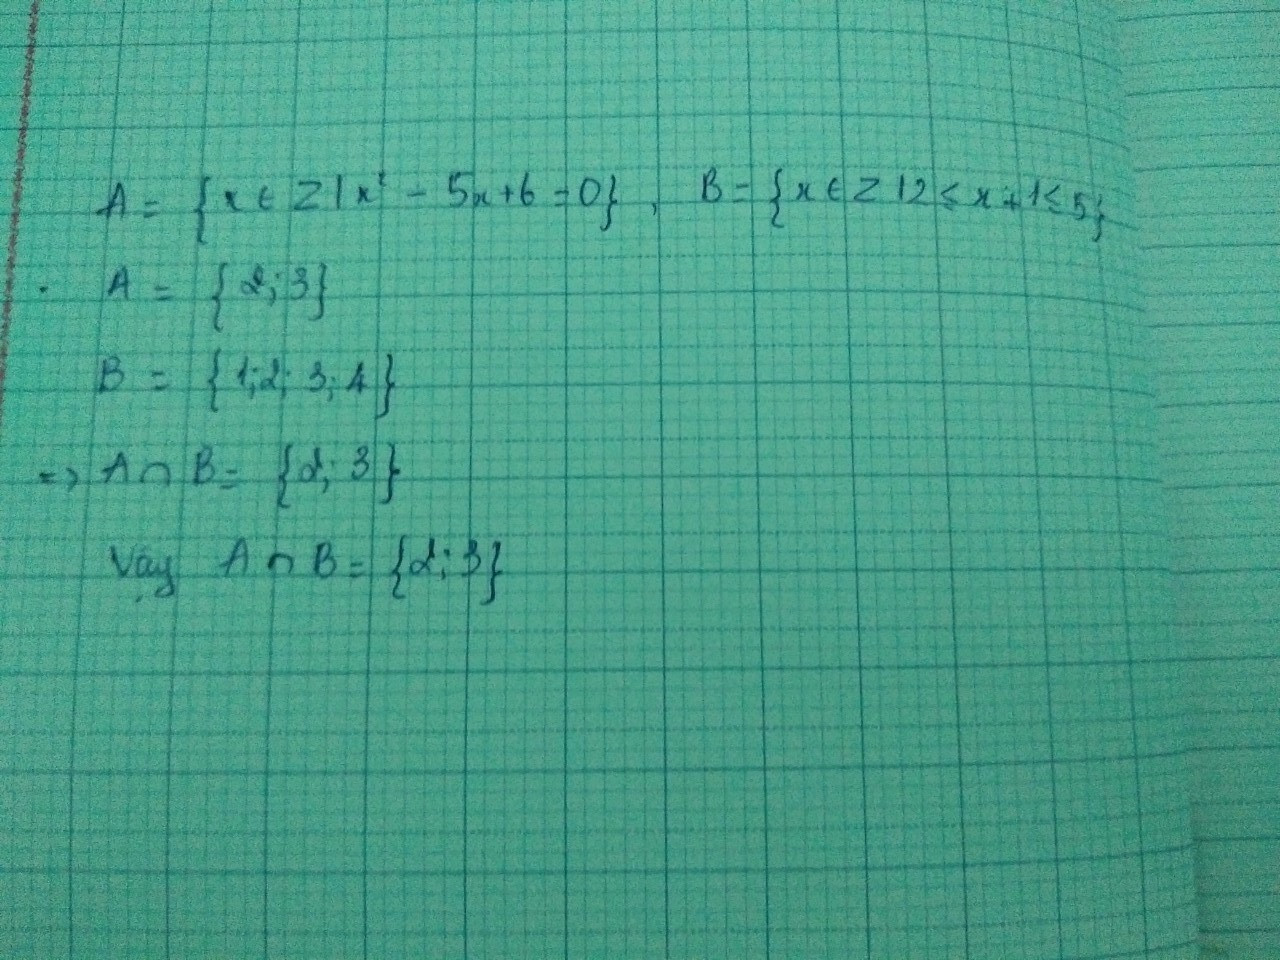 A = {x ∈ Z | x² - 5x + 6 = 0}, B = {x ∈ Z | 2 ≤ x + 1 ≤ 5}
. A = {2; 3}
B = {1; 2; 3; 4}
=> A ∩ B = {2; 3}
Vậy A ∩ B = {2; 3}